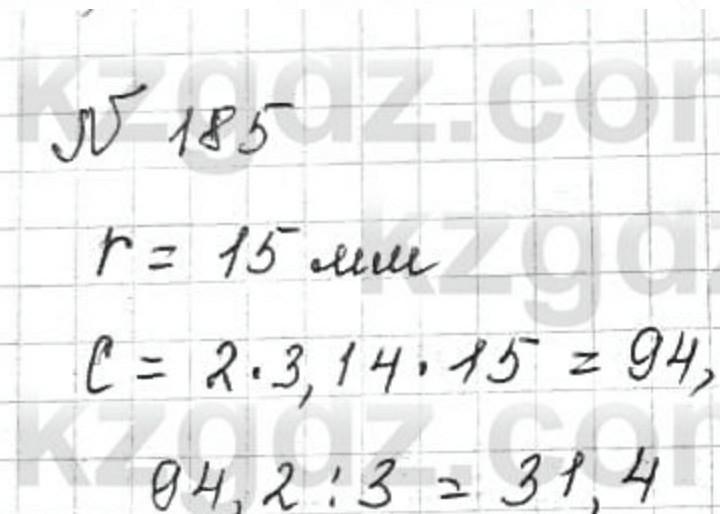 № 185
r = 15 мм
C = 2·3,14·15 = 94,
94,2 : 3 = 31,4
kzgdz.com
kzgdz
kzgdz.com